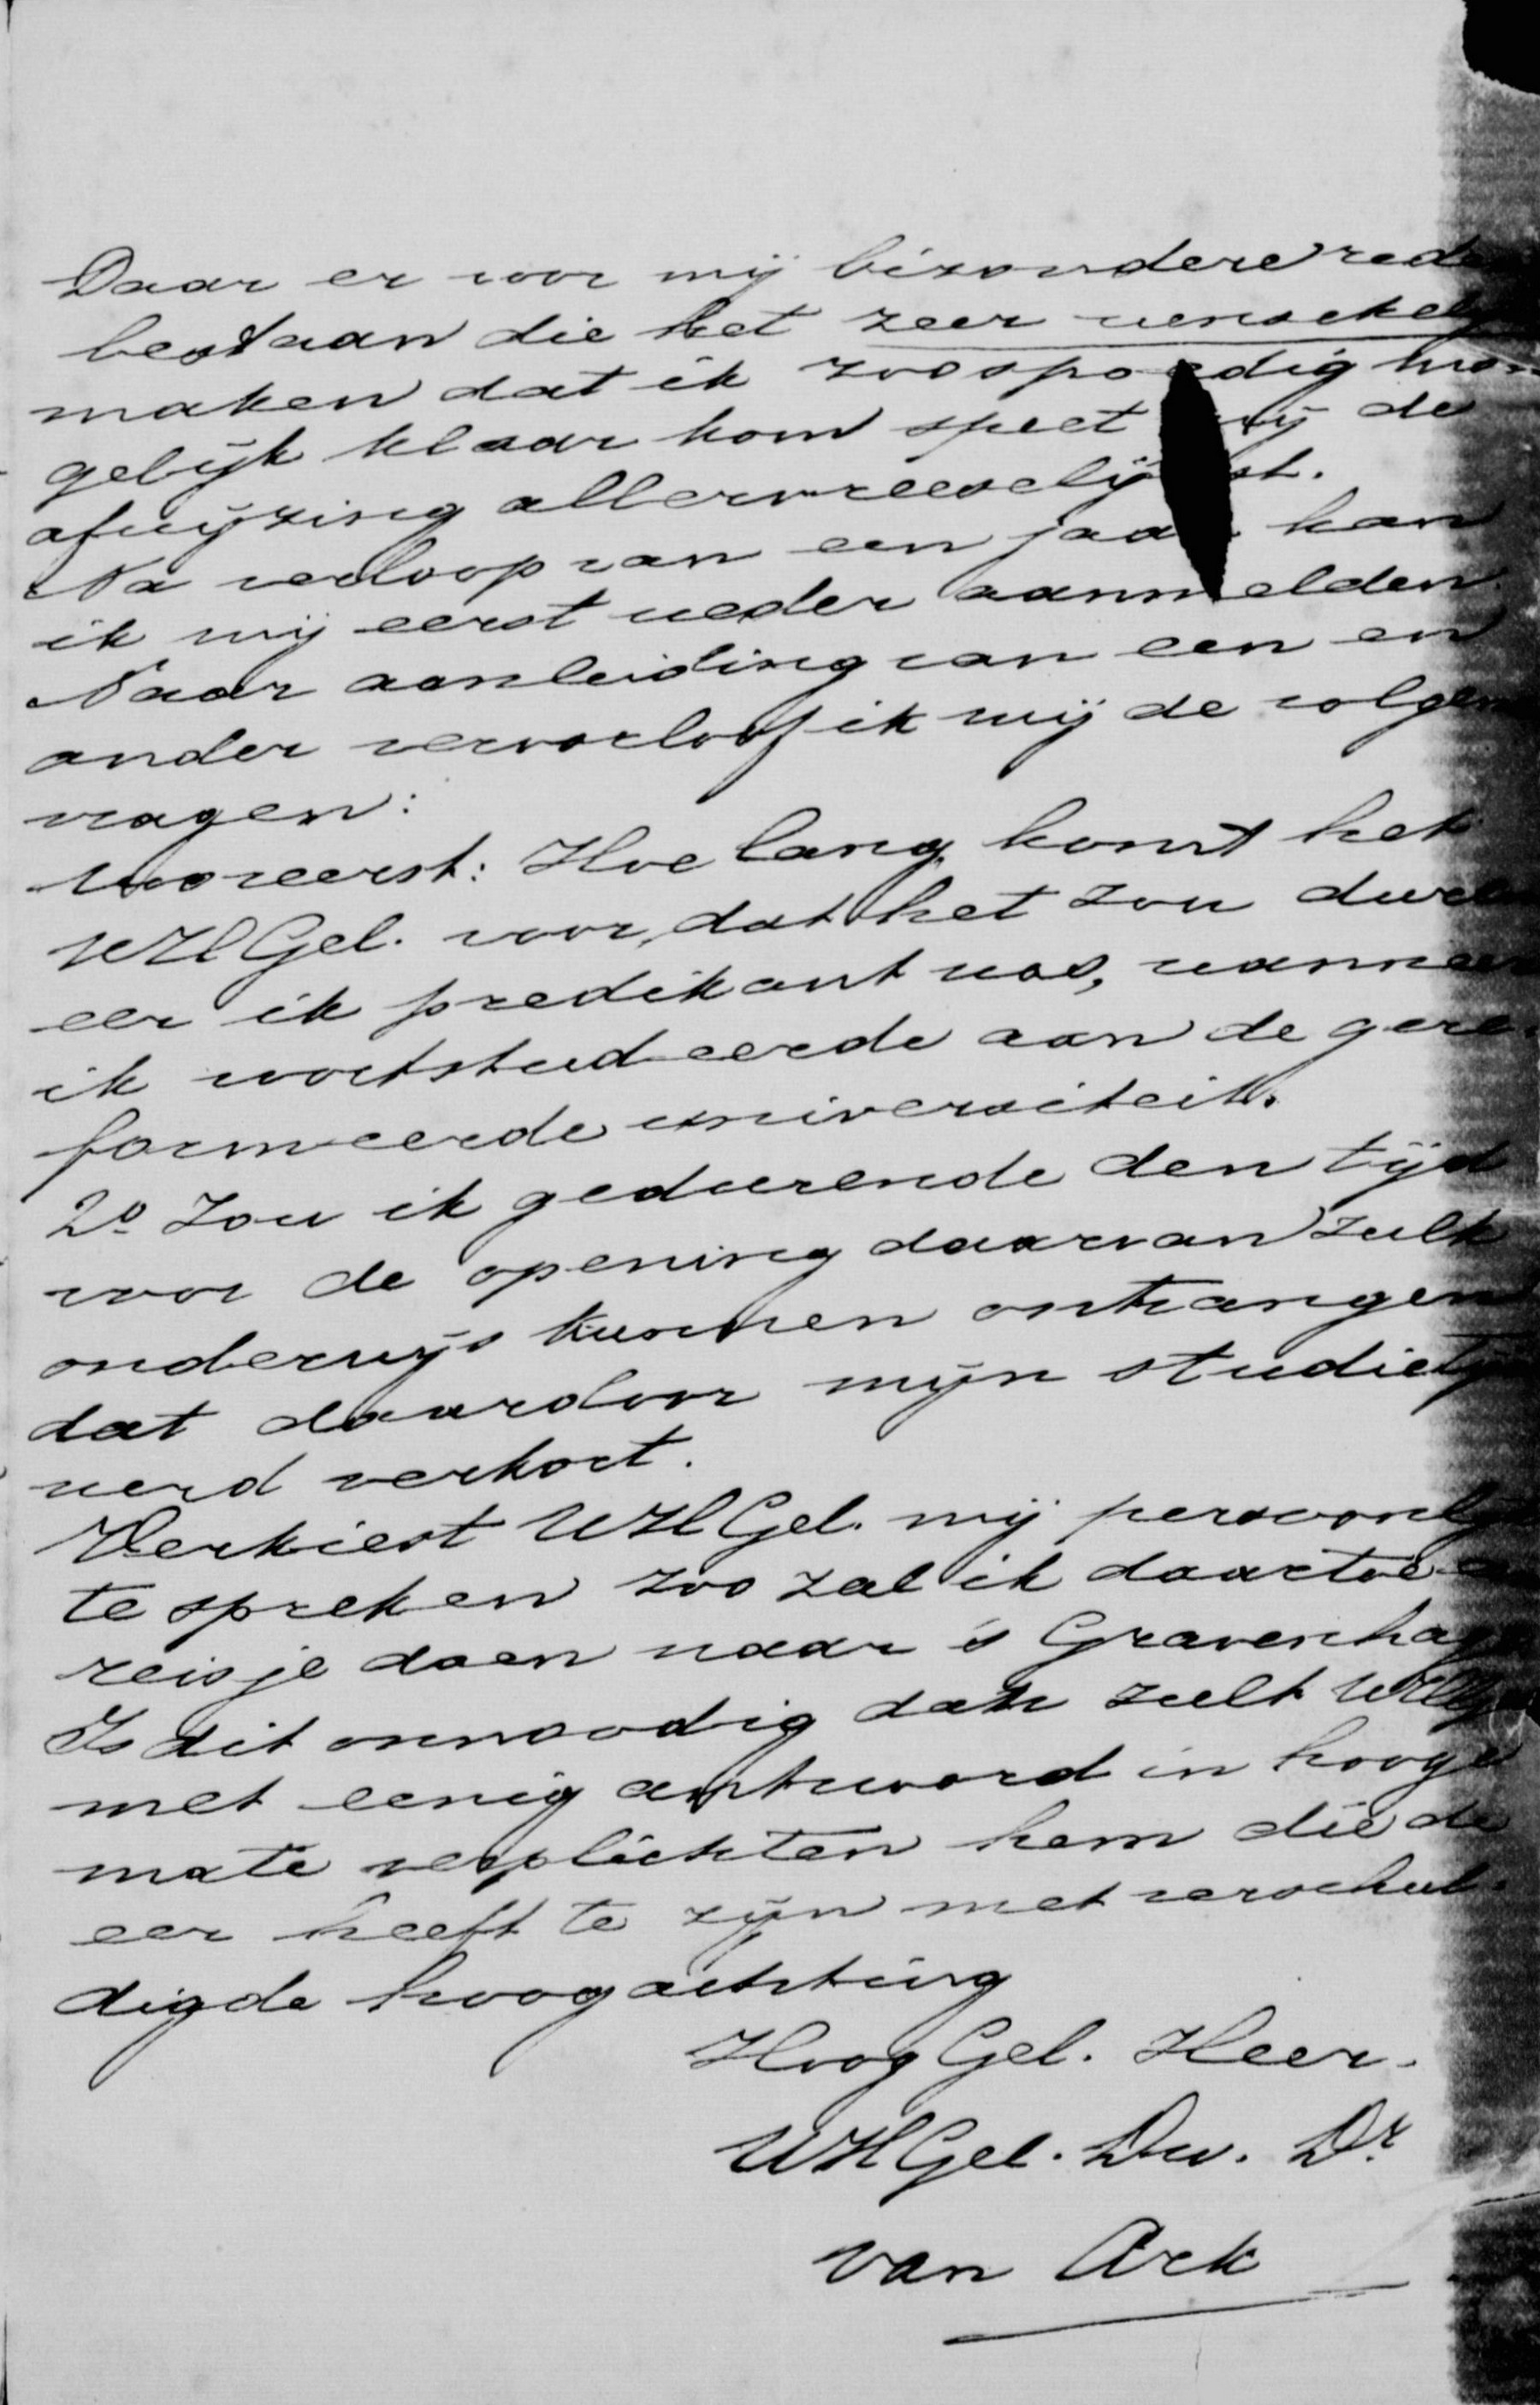 Daar er voor mij bizondere rede
bestaan die het zeer wenschelij
maken dat ik zoospoedig mo-
gelijk klaar kom speet mij de
afwijzing allervreeselijkst.
Na verloop van een jaar kan
ik mij eerst weder aanmelden.
Naar aanleiding van een en
ander veroorloof ik mij de volgen
vragen:
Vooreerst: Hoe lang komt het
UHGel. voor, dat het zou duren
eer ik predikant was, wanneer
ik voortstudeerde aan de gere-
formeerde universiteit.
2o Zou ik gedurende den tijd
voor de opening daarvan zulk
onderwijs kunnen ontvangen
dat daardoor mijn studietij
werd verkort.
Verkiest UHGel. mij persoonlij
te spreken zoo zal ik daartoe e
reisje doen naar 's Gravenhage
Is dit onnoodig dan zult UHG
met eenig antwoord in hooge
mate verplichten hem die de
eer heeft te zijn met verschul-
digde hoogachting
HoogGel. Heer.
UHGel. Dw. Dr
van Ark